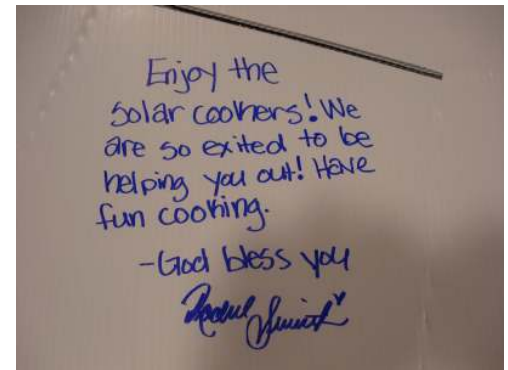 Enjoy the
solar cookers! We
are so exited to be
helping you out! Have
fun cooking.
-God bless you